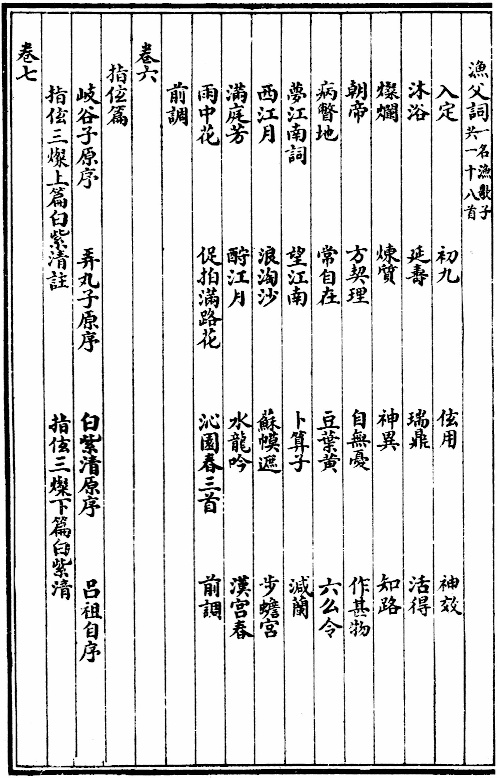 漁父詞一名漁歌子共一十八首
入定　初九　伭用　神效
沐浴　延壽　瑞鼎　活得
燦爛　煉質　神異　知路
朝帝　方契理　自無憂　作甚物
病瞥地　常自在　豆葉黃　六么令
夢江南詞　望江南　卜算子　減蘭
西江月　浪淘沙　蘇幙遮　步蟾宮
滿庭芳　酹江月　水龍吟　漢宮春
雨中花　促拍滿路花　沁園春三首　前調
前調
卷六
指伭篇
岐谷子原序　弄丸子原序　白紫清原序　呂祖自序
指伭三燦上篇白紫清註　指伭三燦下篇白紫清
卷七